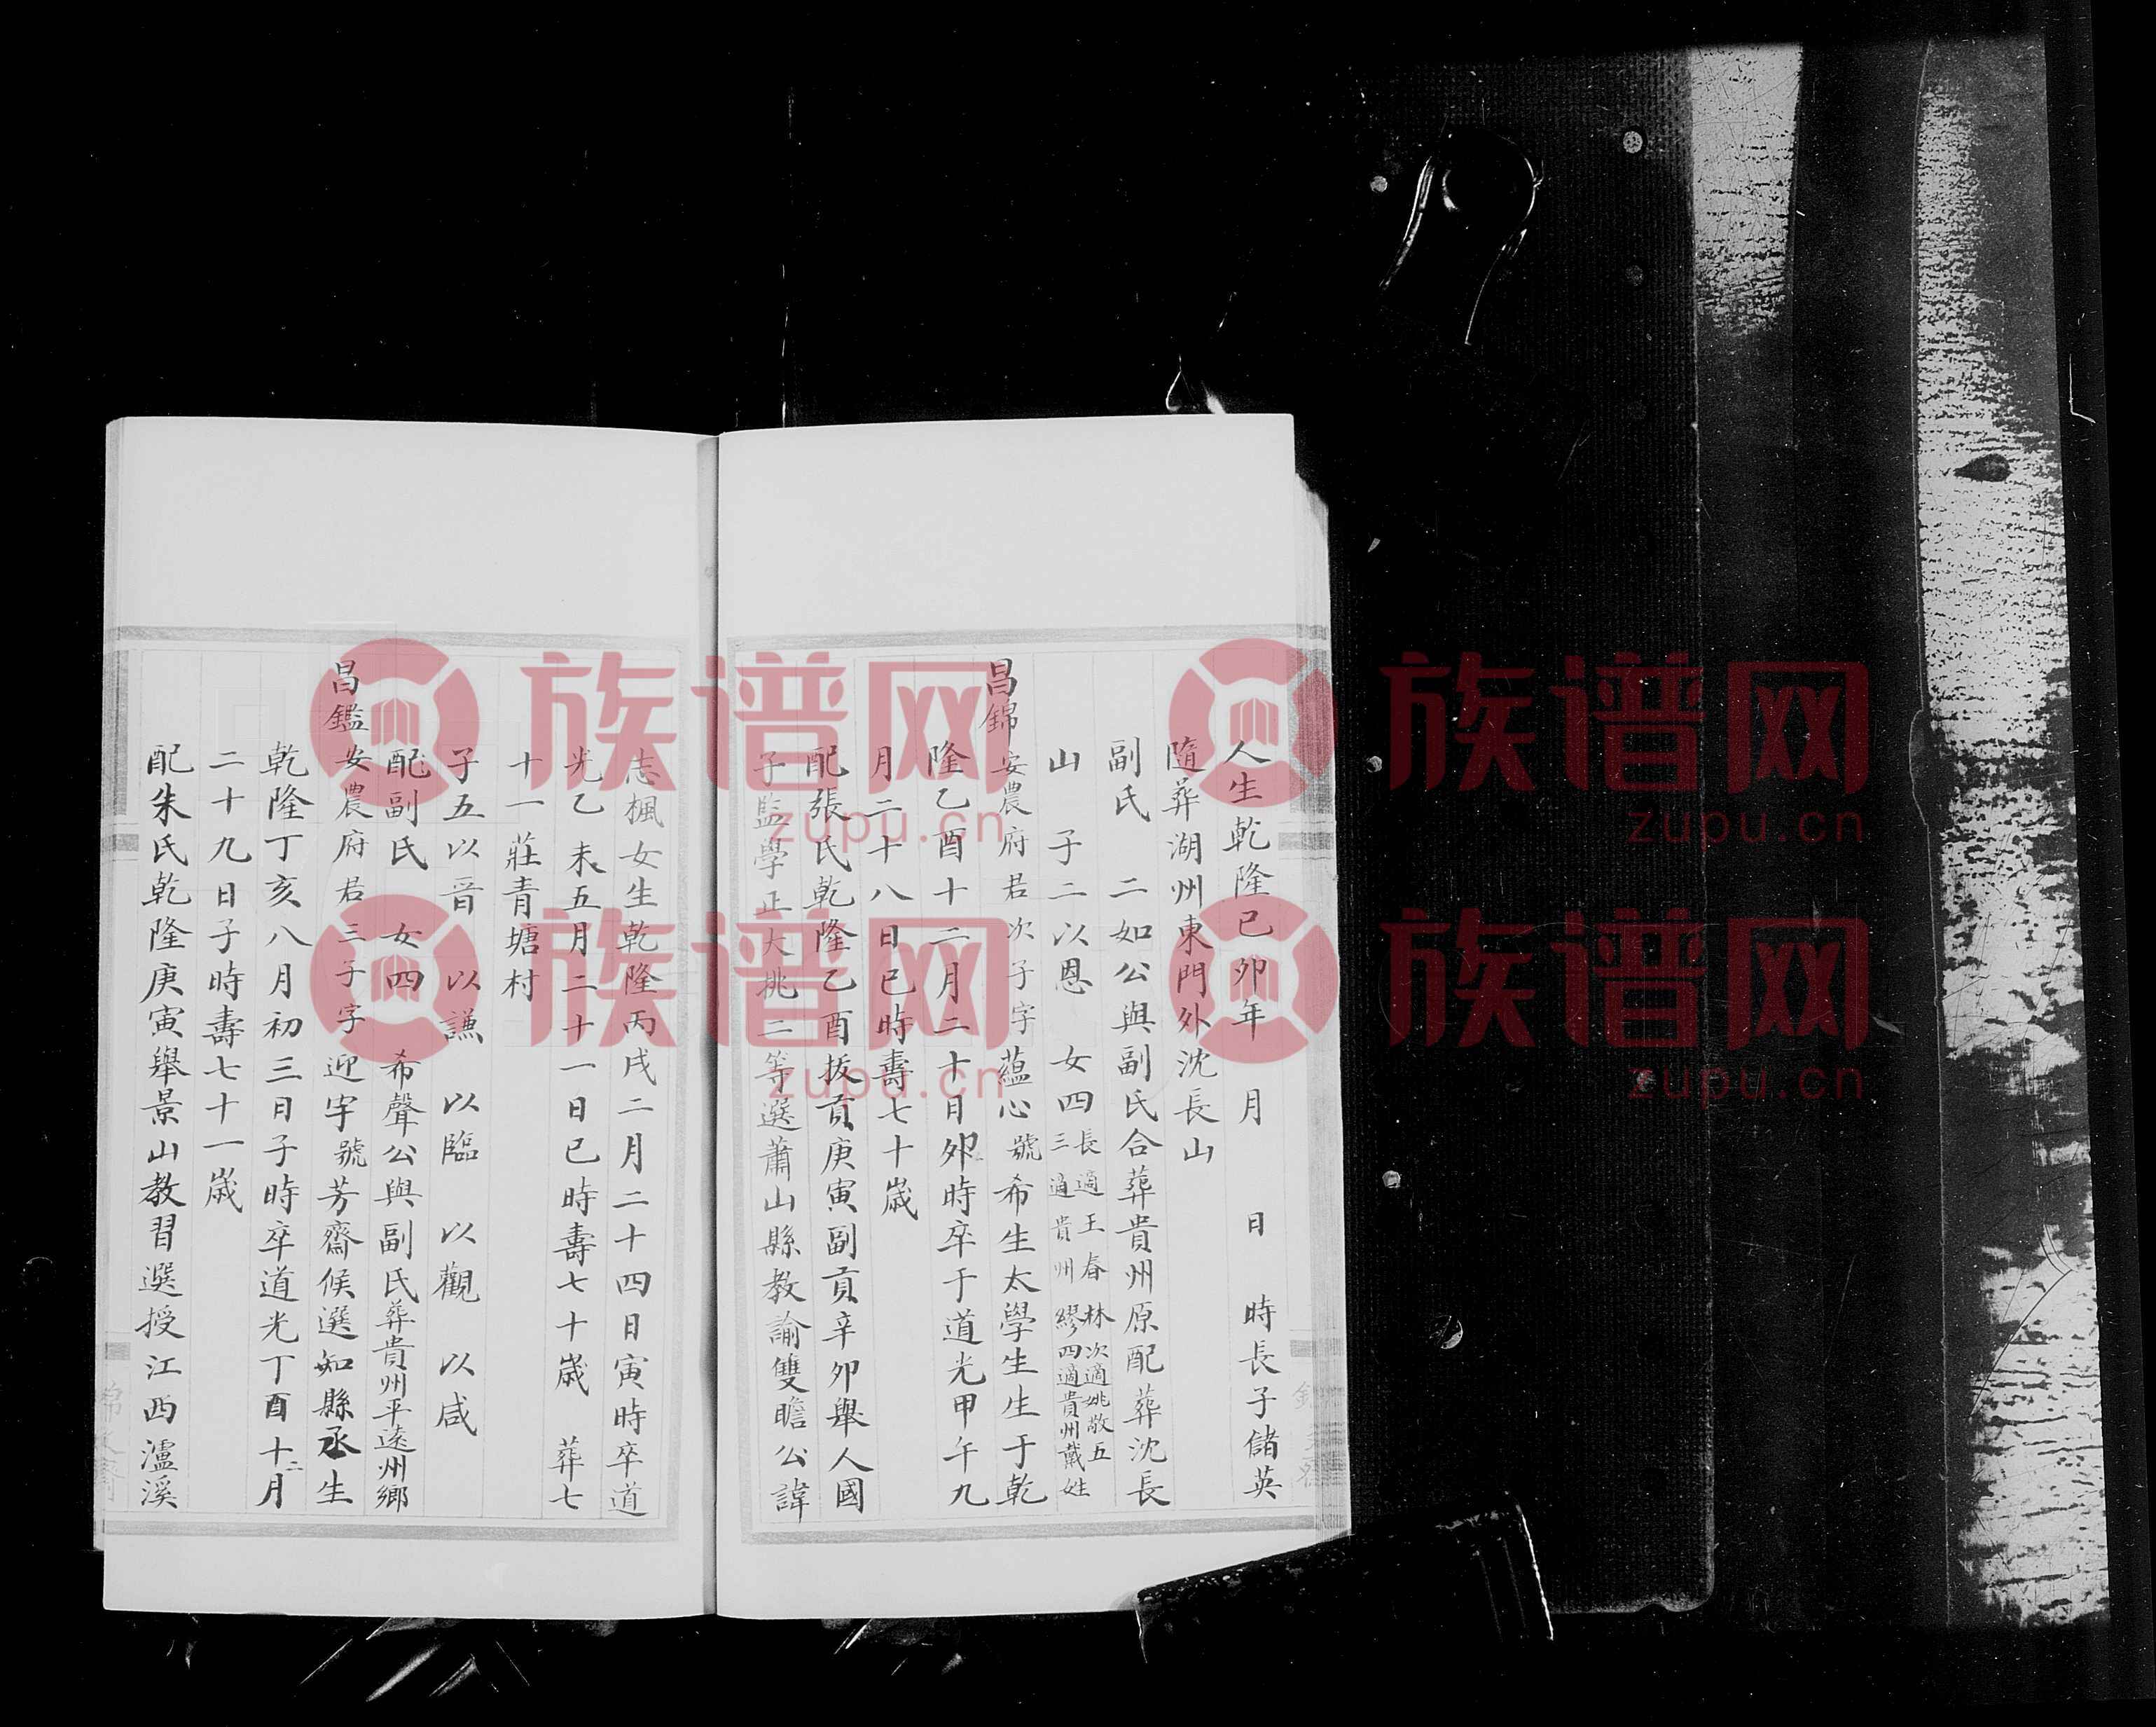 人生乾隆已卯年 月 日 時長子儲英
隨葬湖州東門外沈長山
副氏 二如公與副氏合葬貴州原配葬沈長
山 子二以恩 女四長適王春林次適姚敬五
三適貴州繆四適貴州戴姓
昌錦安農府君次子字蘊心號希生太學生生于乾
隆乙酉十二月二十日卯時卒于道光甲午九
月二十八日巳時壽七十歲
配張氏乾隆乙酉拔貢庚寅副貢辛卯舉人國
子監學正大挑二等選蕭山縣教諭雙瞻公諱
志楓女生乾隆丙戌二月二十四日寅時卒道
光乙未五月二十一日巳時壽七十歲 葬七
十一莊青塘村
子五以晋 以謙 以臨 以觀 以咸
配副氏 女四 希聲公與副氏葬貴州平遠州鄉
昌鑑安農府君三子字迎宇號芳齋候選知縣丞生
乾隆丁亥八月初三日子時卒道光丁酉十二月
二十九日子時壽七十一歲
配朱氏乾隆庚寅舉景山教習選授江西瀘溪
族谱网
zupu.cn
族谱网
zupu.cn
族谱网
zupu.cn
族谱网
zupu.cn